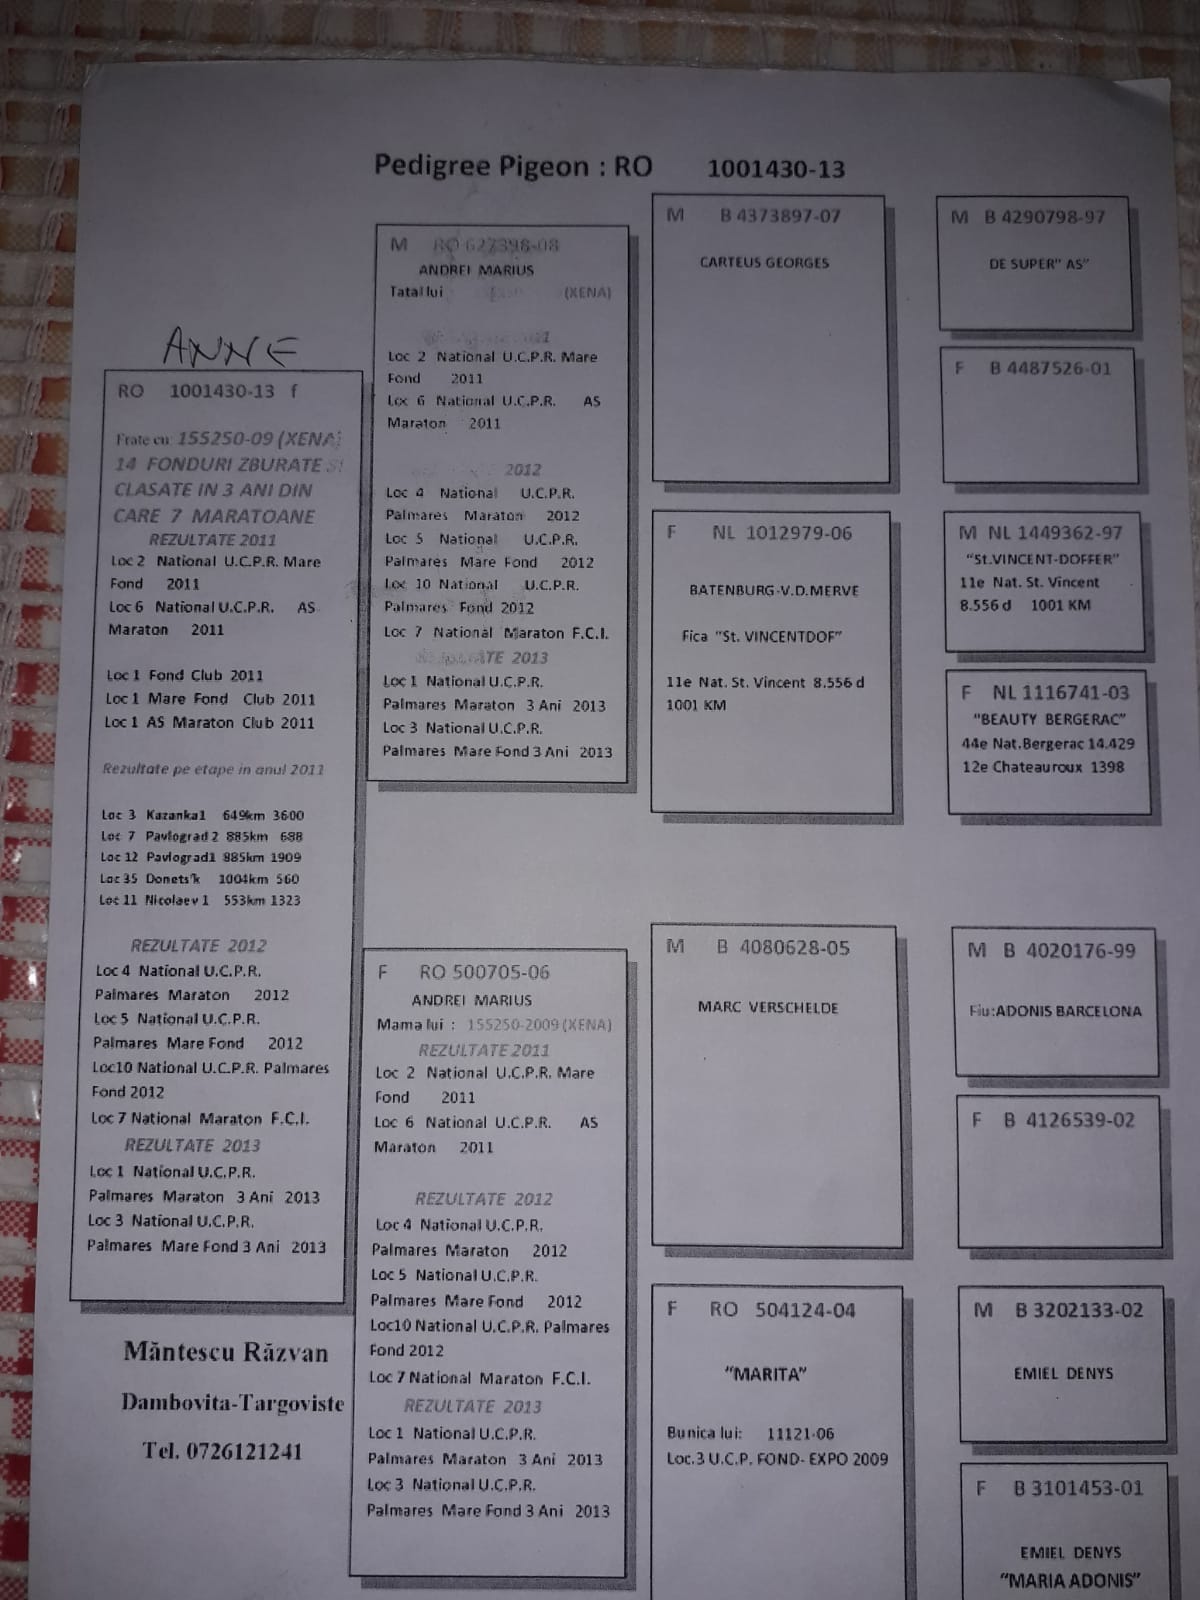 Pedigree Pigeon : RO 1001430-13
ANNE
RO 1001430-13 f
Frate cu: 155250-09 (XENA)
14 FONDURI ZBURATE SI
CLASATE IN 3 ANI DIN
CARE 7 MARATOANE
REZULTATE 2011
Loc 2 National U.C.P.R. Mare
Fond 2011
Loc 6 National U.C.P.R. AS
Maraton 2011
Loc 1 Fond Club 2011
Loc 1 Mare Fond Club 2011
Loc 1 AS Maraton Club 2011
Rezultate pe etape in anul 2011
Loc 3 Kazanka1 649km 3600
Loc 7 Pavlograd 2 885km 688
Loc 12 Pavlograd1 885km 1909
Loc 35 Donets'k 1004km 560
Loc 11 Nicolaev 1 553km 1323
REZULTATE 2012
Loc 4 National U.C.P.R.
Palmares Maraton 2012
Loc 5 National U.C.P.R.
Palmares Mare Fond 2012
Loc10 National U.C.P.R. Palmares
Fond 2012
Loc 7 National Maraton F.C.I.
REZULTATE 2013
Loc 1 National U.C.P.R.
Palmares Maraton 3 Ani 2013
Loc 3 National U.C.P.R.
Palmares Mare Fond 3 Ani 2013
Măntescu Răzvan
Dambovita-Targoviste
Tel. 0726121241
M RO 627398-08
ANDREI MARIUS
Tatal lui (XENA)
Loc 2 National U.C.P.R. Mare
Fond 2011
Loc 6 National U.C.P.R. AS
Maraton 2011
2012
Loc 4 National U.C.P.R.
Palmares Maraton 2012
Loc 5 National U.C.P.R.
Palmares Mare Fond 2012
Loc 10 National U.C.P.R.
Palmares Fond 2012
Loc 7 National Maraton F.C.I.
2013
Loc 1 National U.C.P.R.
Palmares Maraton 3 Ani 2013
Loc 3 National U.C.P.R.
Palmares Mare Fond 3 Ani 2013
F RO 500705-06
ANDREI MARIUS
Mama lui : 155250-2009 (XENA)
REZULTATE 2011
Loc 2 National U.C.P.R. Mare
Fond 2011
Loc 6 National U.C.P.R. AS
Maraton 2011
REZULTATE 2012
Loc 4 National U.C.P.R.
Palmares Maraton 2012
Loc 5 National U.C.P.R.
Palmares Mare Fond 2012
Loc10 National U.C.P.R. Palmares
Fond 2012
Loc 7 National Maraton F.C.I.
REZULTATE 2013
Loc 1 National U.C.P.R.
Palmares Maraton 3 Ani 2013
Loc 3 National U.C.P.R.
Palmares Mare Fond 3 Ani 2013
M B 4373897-07
CARTEUS GEORGES
F NL 1012979-06
BATENBURG-V.D.MERVE
Fica "St. VINCENTDOF"
11e Nat. St. Vincent 8.556 d
1001 KM
M B 4080628-05
MARC VERSCHELDE
F RO 504124-04
"MARITA"
Bunica lui: 11121-06
Loc.3 U.C.P. FOND- EXPO 2009
M B 4290798-97
DE SUPER" AS"
F B 4487526-01
M NL 1449362-97
"St.VINCENT-DOFFER"
11e Nat. St. Vincent
8.556 d 1001 KM
F NL 1116741-03
"BEAUTY BERGERAC"
44e Nat.Bergerac 14.429
12e Chateauroux 1398
M B 4020176-99
Fiu:ADONIS BARCELONA
F B 4126539-02
M B 3202133-02
EMIEL DENYS
F B 3101453-01
EMIEL DENYS
"MARIA ADONIS"